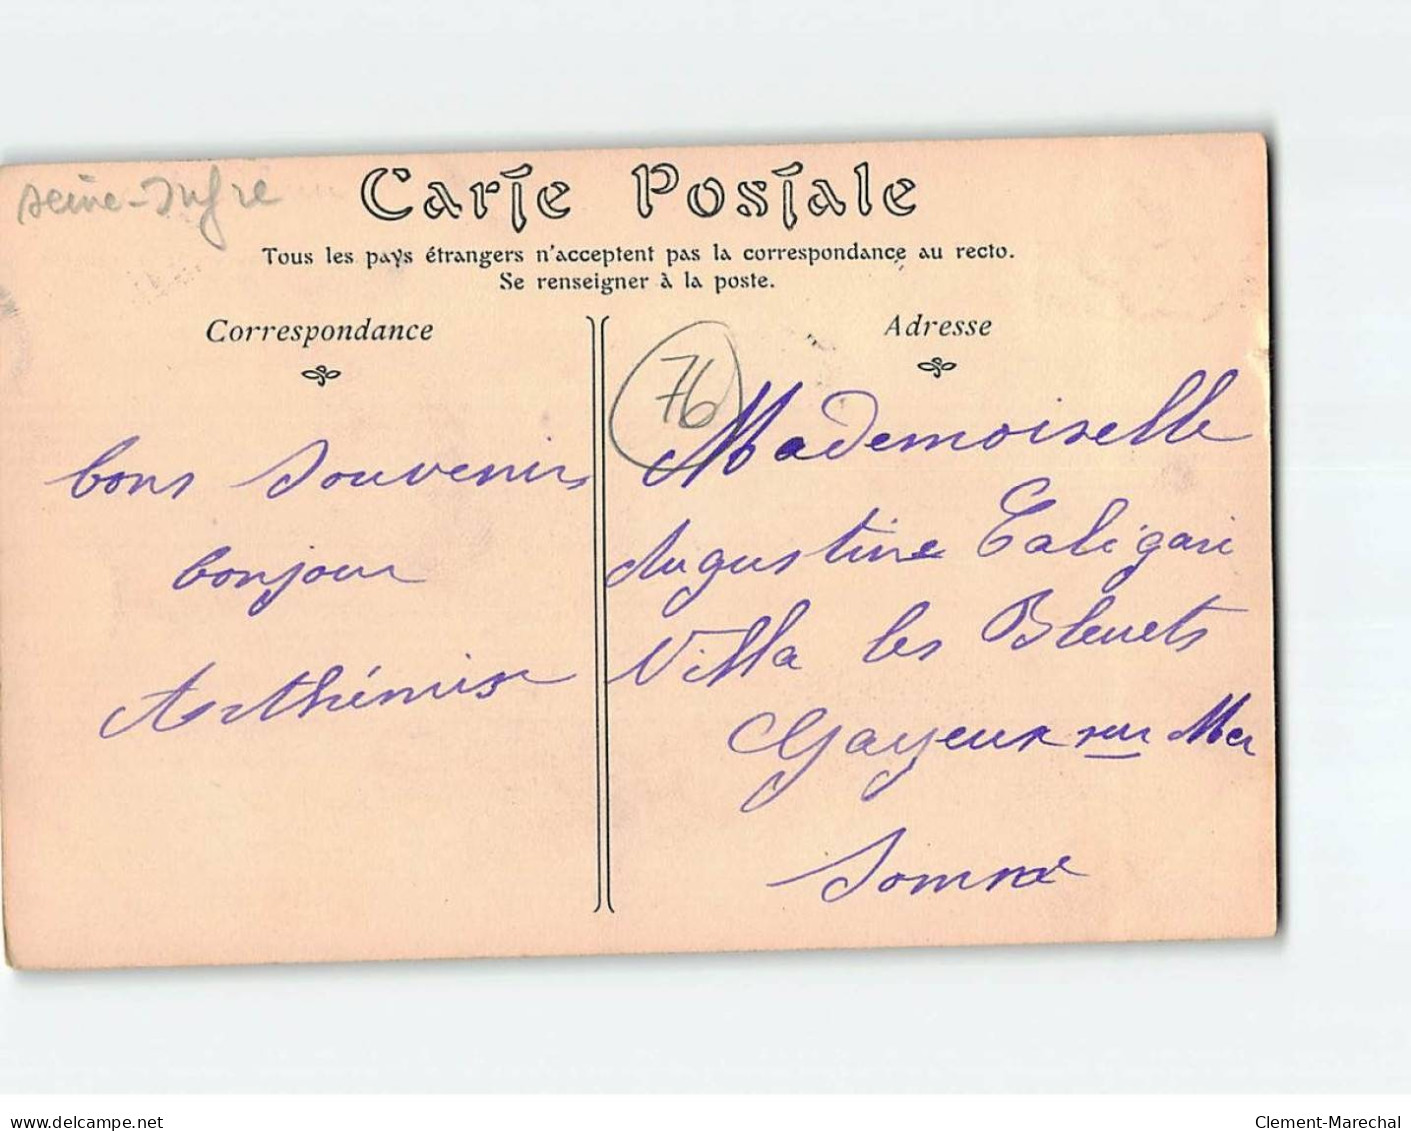 seine-Infre
Carte Postale
Tous les pays étrangers n'acceptent pas la correspondance au recto.
Se renseigner à la poste.
Correspondance
bons Souvenirs
bonjour
Arthémise
Adresse
76
Mademoiselle
Augustine Caligari
Villa les Bleuets
Cayeux sur Mer
Somme
www.delcampe.net
Clement-Marechal